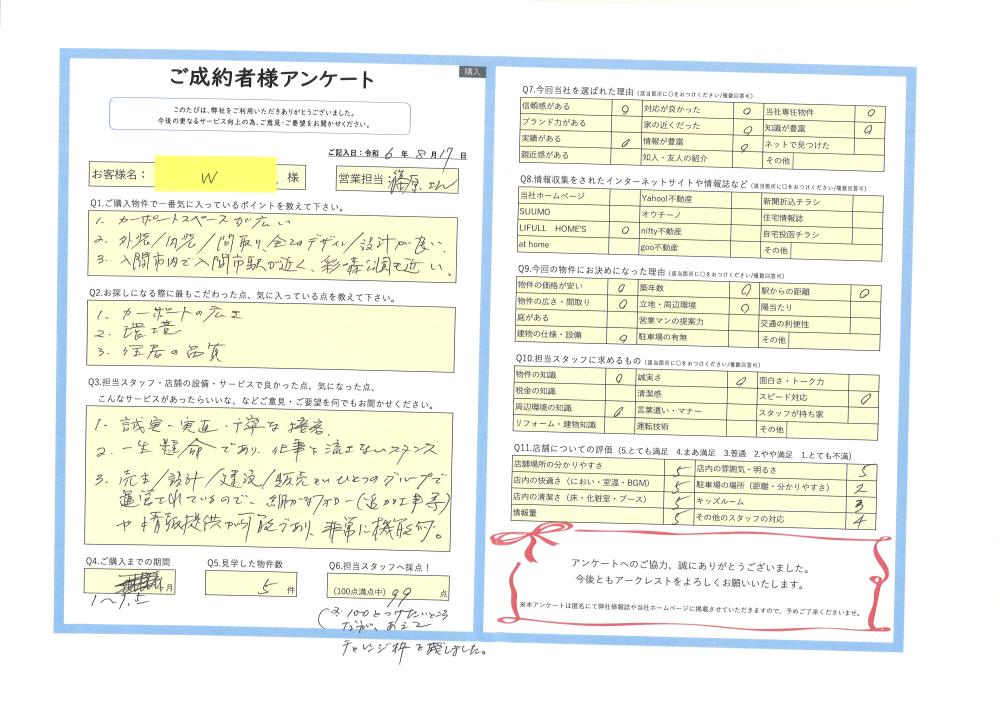 ご成約者様アンケート
購入
このたびは、弊社をご利用いただきありがとうございました。
今後の更なるサービス向上の為、ご意見・ご要望をお聞かせください。
ご記入日：令和 6 年 8 月 17 日
お客様名： W 様
営業担当：篠原さん
Q1.ご購入物件で一番気に入っているポイントを教えて下さい。
1. カーポートスペースが広い
2. 外装/内装/間取り 全てのデザイン/設計が良い.
3. 入間市内で入間市駅が近く、彩の森公園も近い.
Q2.お探しになる際に最もこだわった点、気に入っている点を教えて下さい。
1. カーポートの広さ
2. 環境
3. 住居の品質
Q3.担当スタッフ・店舗の設備・サービスで良かった点、気になった点、
こんなサービスがあったらいいな、などご意見・ご要望を何でもお聞かせください。
1. 誠実・実直・丁寧な接客.
2. 一生懸命であり、仕事を流さないスタンス
3. 売主/設計/建設/販売といひとつのグループで
運営されているので、細かなフォロー(追加工事等)
や情報提供が可能であり、非常に機能的。
Q4.ご購入までの期間
月
Q5.見学した物件数
5 件
Q6.担当スタッフへ採点！
(100点満点中) 99 点
(※100とつけたいところ
だが、あえて
チャレンジ枠を残しました。
Q7.今回当社を選ばれた理由 (該当箇所に〇をおつけください/複数回答可)
信頼感がある ○ 対応が良かった ○ 当社専任物件 ○
ブランド力がある 家の近くだった ○ 知識が豊富 ○
実績がある ○ 情報が豊富 ○ ネットで見つけた
親近感がある 知人・友人の紹介 その他
Q8.情報収集をされたインターネットサイトや情報誌など (該当箇所に〇をおつけください/複数回答可)
当社ホームページ Yahoo!不動産 新聞折込チラシ
SUUMO オウチーノ 住宅情報誌
LIFULL HOME'S ○ nifty不動産 自宅投函チラシ
at home goo不動産 その他
Q9.今回の物件にお決めになった理由 (該当箇所に〇をおつけください/複数回答可)
物件の価格が安い ○ 築年数 ○ 駅からの距離 ○
物件の広さ・間取り ○ 立地・周辺環境 ○ 陽当たり
庭がある 営業マンの提案力 交通の利便性
建物の仕様・設備 ○ 駐車場の有無 その他
Q10.担当スタッフに求めるもの (該当箇所に〇をおつけください/複数回答可)
物件の知識 ○ 誠実さ ○ 面白さ・トーク力
税金の知識 清潔感 スピード対応 ○
周辺環境の知識 ○ 言葉遣い・マナー スタッフが持ち家
リフォーム・建物知識 運転技術 その他
Q11.店舗についての評価 (5.とても満足 4.まあ満足 3.普通 2.やや満足 1.とても不満)
店舗場所の分かりやすさ 5 店内の雰囲気・明るさ 5
店内の快適さ（におい・室温・BGM） 5 駐車場の場所（距離・分かりやすさ） 2
店内の清潔さ（床・化粧室・ブース） 5 キッズルーム 3
情報量 5 その他のスタッフの対応 4
アンケートへのご協力、誠にありがとうございました。
今後ともアークレストをよろしくお願いいたします。
※本アンケートは匿名にて弊社情報誌や当社ホームページに掲載させていただきますので、予めご了承くださいませ。